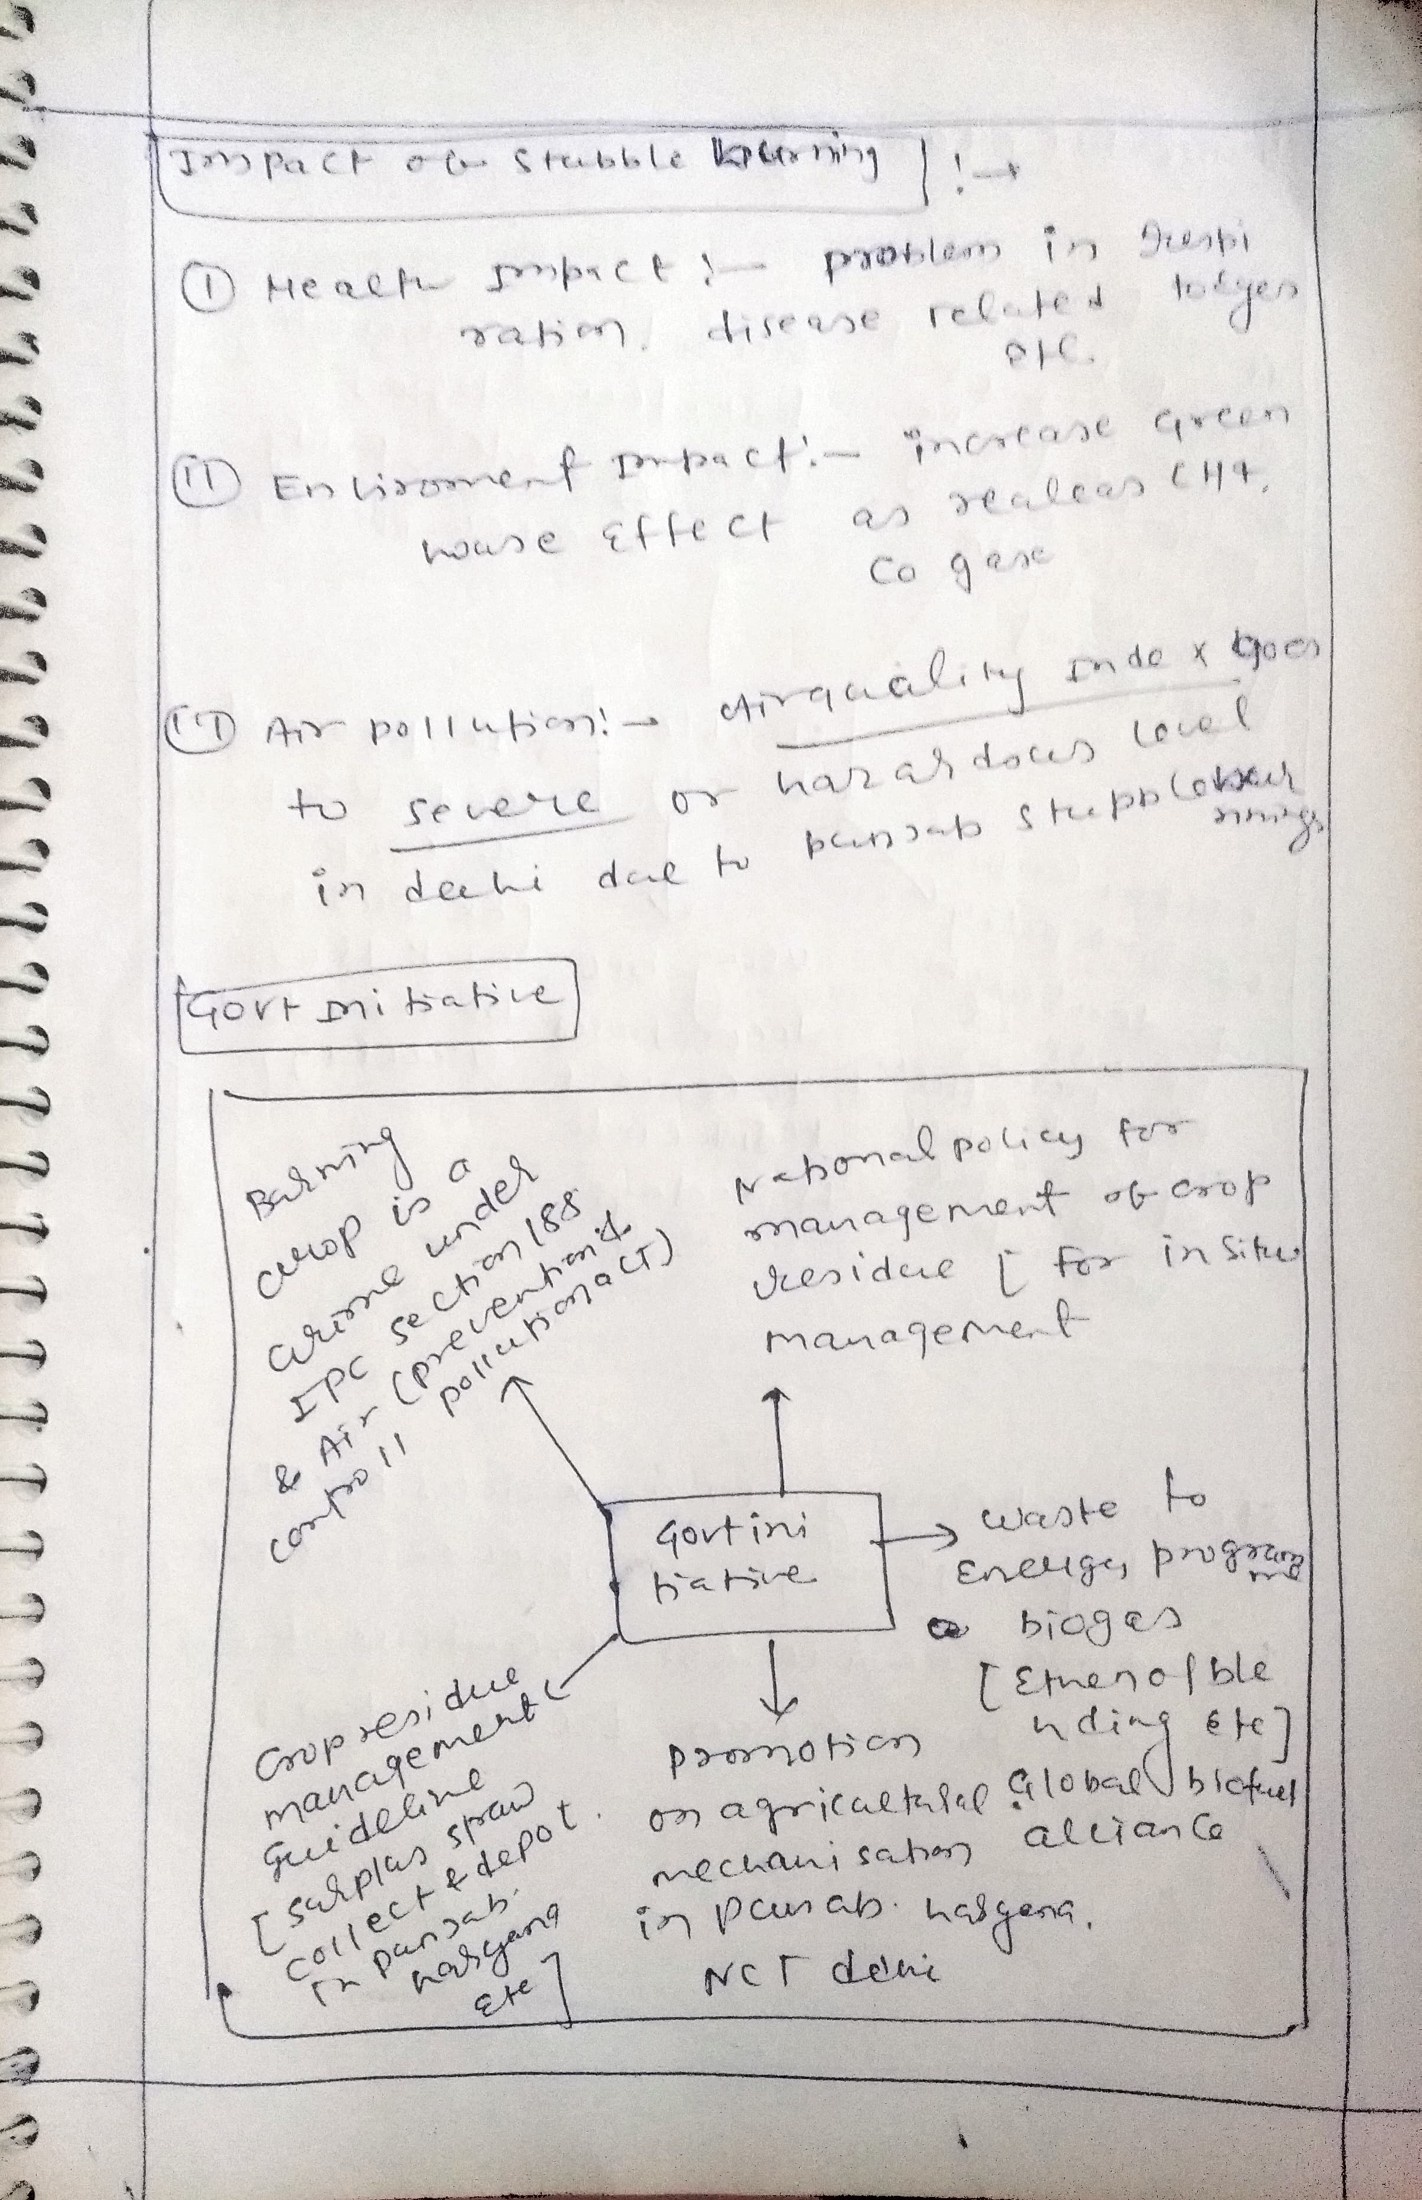 Impact of Stubble burning :→
① Health Impact :- problem in respi
ration, disease related to
etc.
② Enviroment Impact :- increase Green
house Effect as CH4,
CO gase
Air pollution :→ Air quality Index goes
to severe or hazardous level
in delhi due to punjab
Govt Initiative
Burning
crop is a
crime under
IPC section 188
& Air (prevention &
controll pollution act)
National policy for
management of crop
residue [ for in situ
management
Govt ini
tiative
→ waste to
Energy programme
biogas
[Ethenol ble
nding etc]
Global biofuel
alliance
Promotion
on agricultural
mechanisation
in Punjab. haryana.
NCT delhi
Crop residue
management
Guideline
[Surplus straw
collect & depot
in punjab.
haryana
etc]